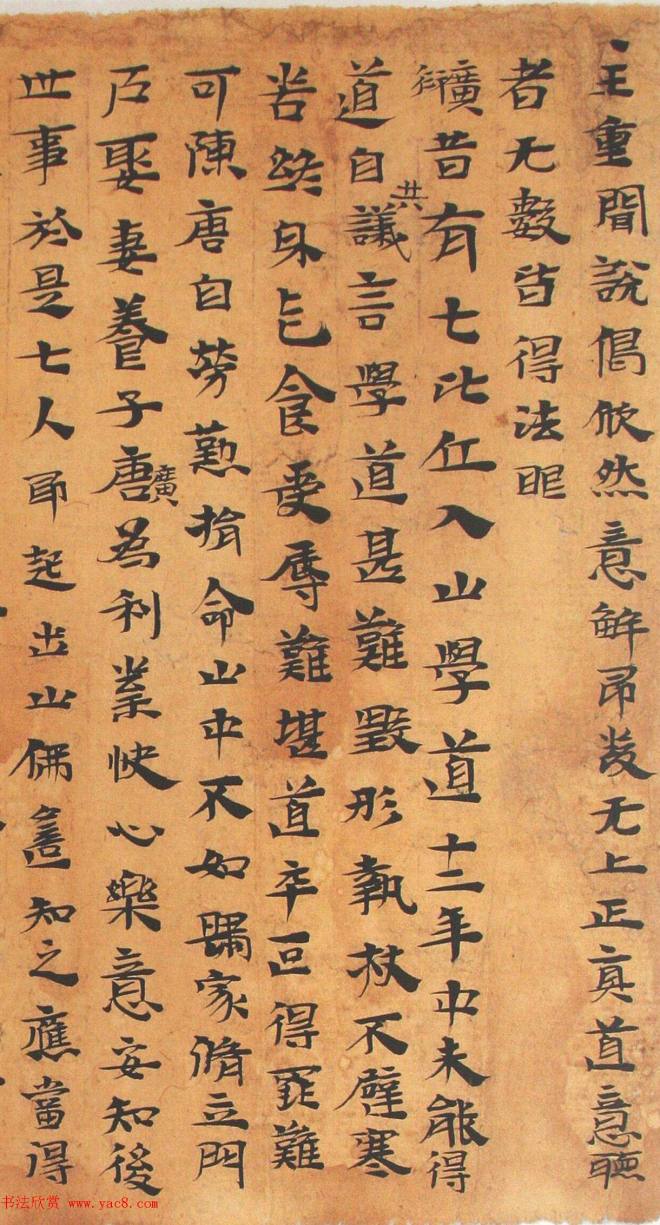 王重聞說偈欣然意解即發无上正真道意聽
者无數皆得法眼
廣昔有七比丘入山學道十二年中未能得
道自共議言學道甚難毀形執杖不避寒
苦終身乞食受辱難堪道卒叵得罪難
可陳唐自勞懃捐命山中不如歸家脩立門
戶娶妻養子唐廣為利業快心樂意安知後
世事於是七人即起出山佛遙知之應當得
书法欣赏 www.yac8.com